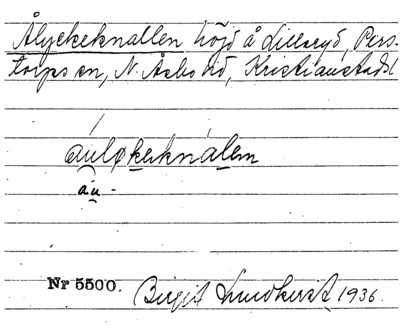 Ålyckeknallen höjd å Lillaryd, Pers-
torps sn, N. Åsbo hd, Kristianstads l
áuløkeknálem
àu -
Nr 5500. Birgit Lundkvist 1936.